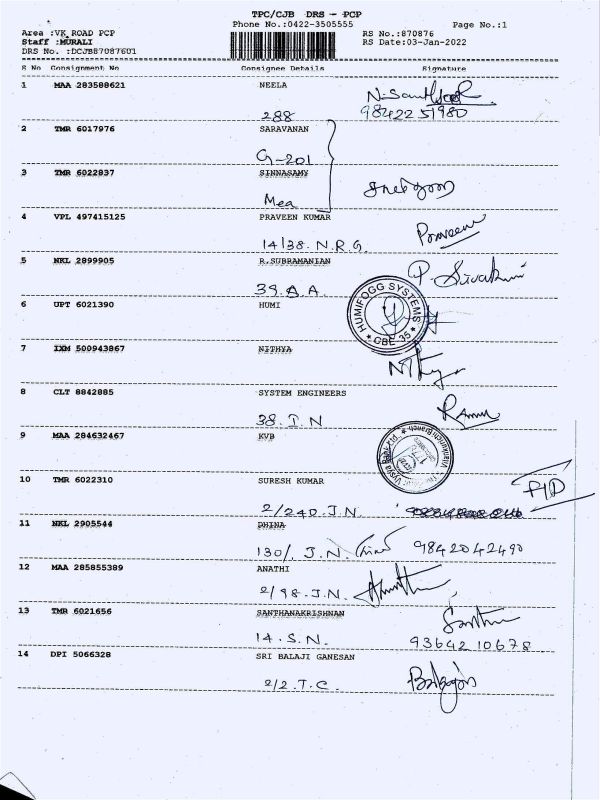 TPC/CJB DRS - PCP
Phone No.:0422-3505555 Page No.:1
Area :VK ROAD PCP RS No.:870876
Staff :MURALI RS Date:03-Jan-2022
DRS No. :DCJB87087601
S No Consignment No Consignee Details Signature
1 MAA 283588621 NEELA
288 9842251980
2 TMR 6017976 SARAVANAN
G-201
3 TMR 6022837 SINNASAMY
Mea
4 VPL 497415125 PRAVEEN KUMAR Praveen
14/38. N.R.G.
5 NKL 2899905 R.SUBRAMANIAN P. Sivakumi
39.A.A.
6 UPT 6021390 HUMI
HUMIFOGG SYSTEMS
* CBE 35 *
7 IXM 500943867 NITHYA
8 CLT 8842885 SYSTEM ENGINEERS
38. I.N
9 MAA 284632467 KVB
10 TMR 6022310 SURESH KUMAR
2/24D.J.N.
11 NKL 2905544 DHINA
130/. J.N. 9842042490
12 MAA 285855389 ANATHI
2/98.J.N.
13 TMR 6021656 SANTHANAKRISHNAN
14.S.N. 9364210678
14 DPI 5066328 SRI BALAJI GANESAN
2/2.T.C.